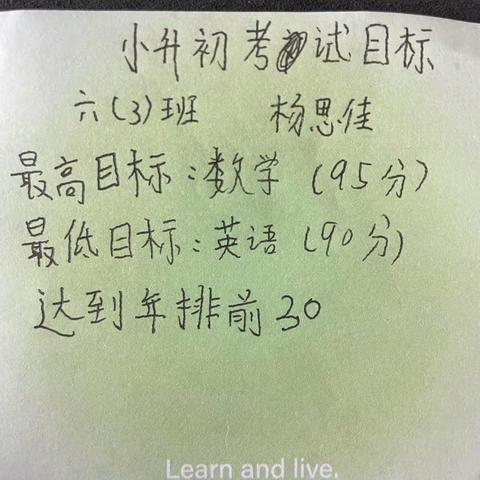 小升初考试目标
六(3)班 杨思佳
最高目标:数学(95分)
最低目标:英语(90分)
达到年排前30
Learn and live.